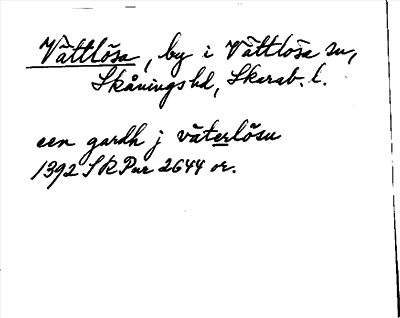 Vättlösa, by i Vättlösa sn,
Skånings hd, Skarab. l.
een gardh j väterlösu
1392 SRPar 2644 or.